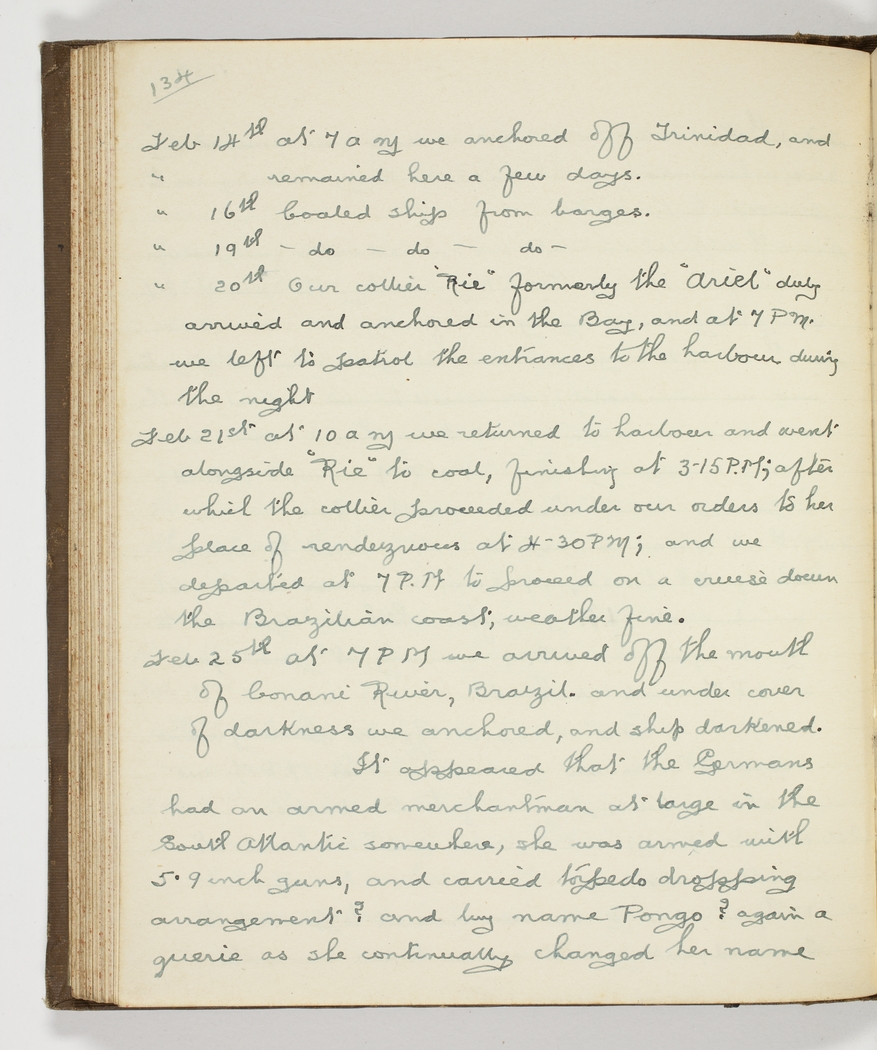 134
Feb 14th at 7 a m we anchored off Trinidad, and
" remained here a few days.
" 16th Coaled ship from barges.
" 19th - do - do - do -
" 20th Our collier "Rie" formerly the "Ariel" duly
arrived and anchored in the Bay, and at 7 P M.
we left to patrol the entrances to the harbour during
the night
Feb 21st at 10 a m we returned to harbour and went
alongside "Rie" to coal, finishing at 3-15 P.M; after
which the collier proceeded under our orders to her
place of rendezvous at 4-30 P M; and we
departed at 7 P.M to proceed on a cruise down
the Brazilian coast; weather fine.
Feb 25th at 7 P M we arrived off the mouth
of Conani River, Brazil. and under cover
of darkness we anchored, and ship darkened.
It appeared that the Germans
had an armed merchantman at large in the
South Atlantic somewhere, she was armed with
5.9 inch guns, and carried torpedo dropping
arrangement ? and by name Pongo ? again a
querie as she continually changed her name